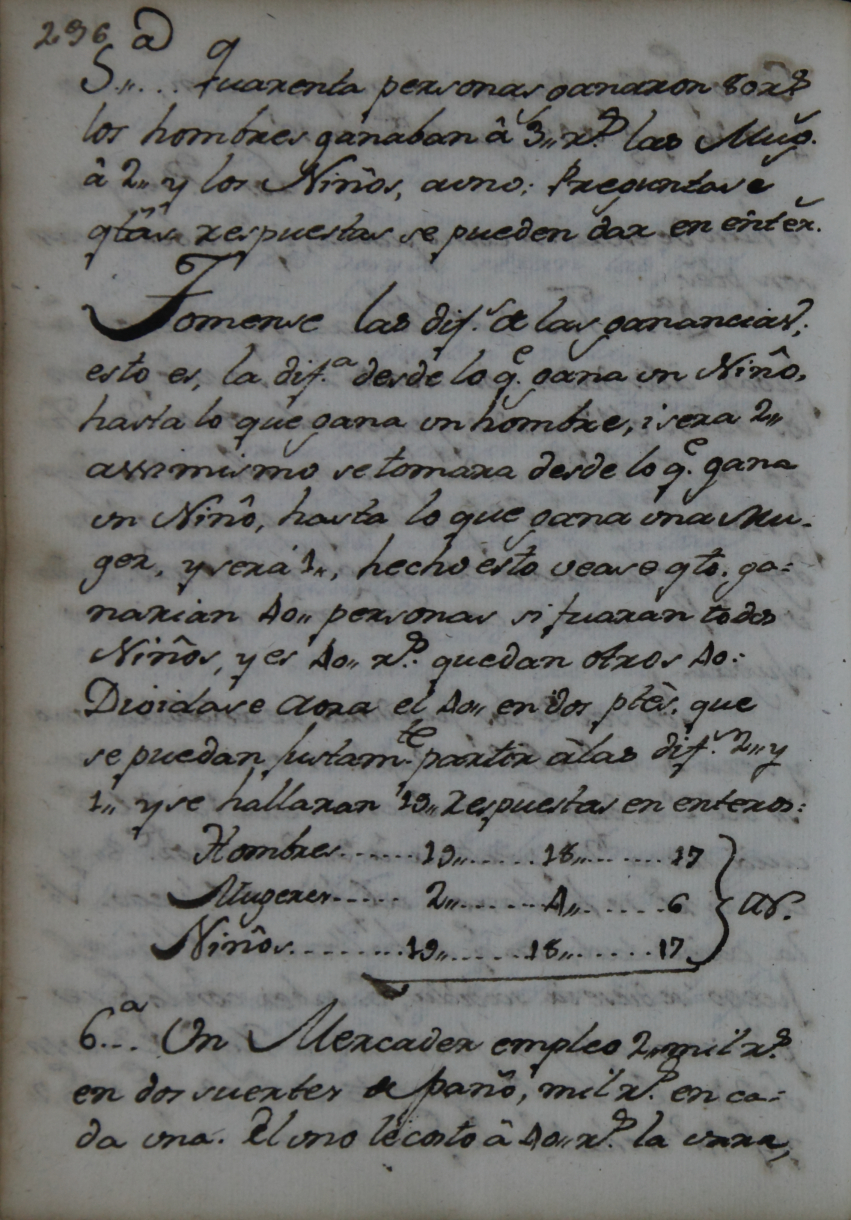 236
5.a... Quarenta personas ganaron 80 r.s
los hombres ganaban â 3,, r.s las Mug.
â 2,, y los Niños, a uno: Preguntase
qtas. respuestas se pueden dar en enter.
Tomense las dif.s de las ganancias,
esto es, la dif.a desde lo q.e gana un Niño,
hasta lo que gana un hombre, i sera 2,,
assimismo se tomara desde lo q.e gana
un Niño, hasta lo que gana una Mu-
ger, y será 1,,, hecho esto vease qto. ga-
narian 40,, personas si fuaran todos
Niños, y es 40,, r.s quedan otros 40:
Dividase aora el 40,, en dos ptes. que
se puedan justam.te partir â las dif.s 2,, y
1,, y se hallaran 19,, respuestas en enteros:
Hombres...... 19,,...... 18,,...... 17
Mugeres..... 2,,...... 4,,...... 6 &.
Niños........ 19,,...... 18,,...... 17
6.a... Un Mercader empleo 2,, mil r.s
en dos suertes de paño, mil r.s en ca-
da una. El uno le costo â 40,, r.s la vara,